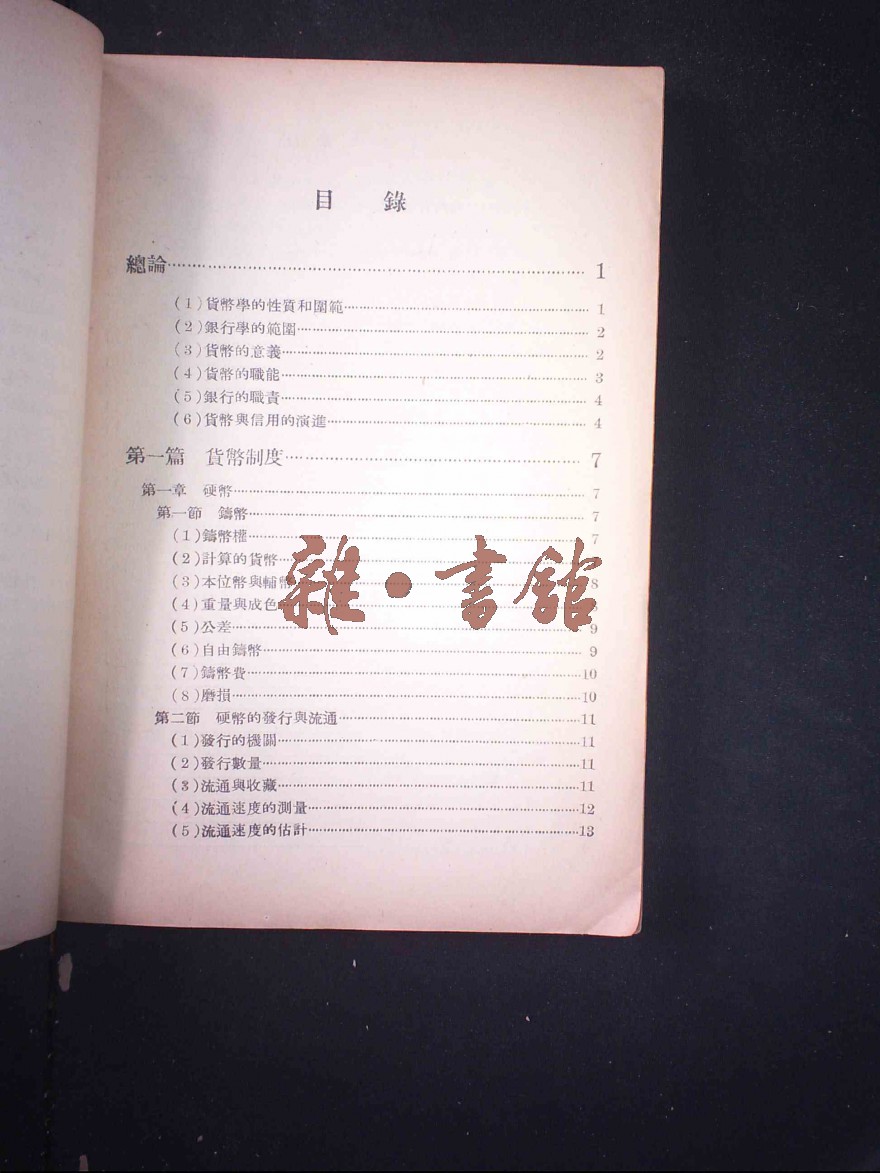 目 錄
總論 1
(1)貨幣學的性質和圍範 1
(2)銀行學的範圍 2
(3)貨幣的意義 2
(4)貨幣的職能 3
(5)銀行的職責 4
(6)貨幣與信用的演進 4
第一篇 貨幣制度 7
第一章 硬幣 7
第一節 鑄幣 7
(1)鑄幣權 7
(2)計算的貨幣
(3)本位幣與輔幣 8
(4)重量與成色 8
(5)公差 9
(6)自由鑄幣 9
(7)鑄幣費 10
(8)磨損 10
第二節 硬幣的發行與流通 11
(1)發行的機關 11
(2)發行數量 11
(3)流通與收藏 11
(4)流通速度的測量 12
(5)流通速度的估計 13
雜·書館